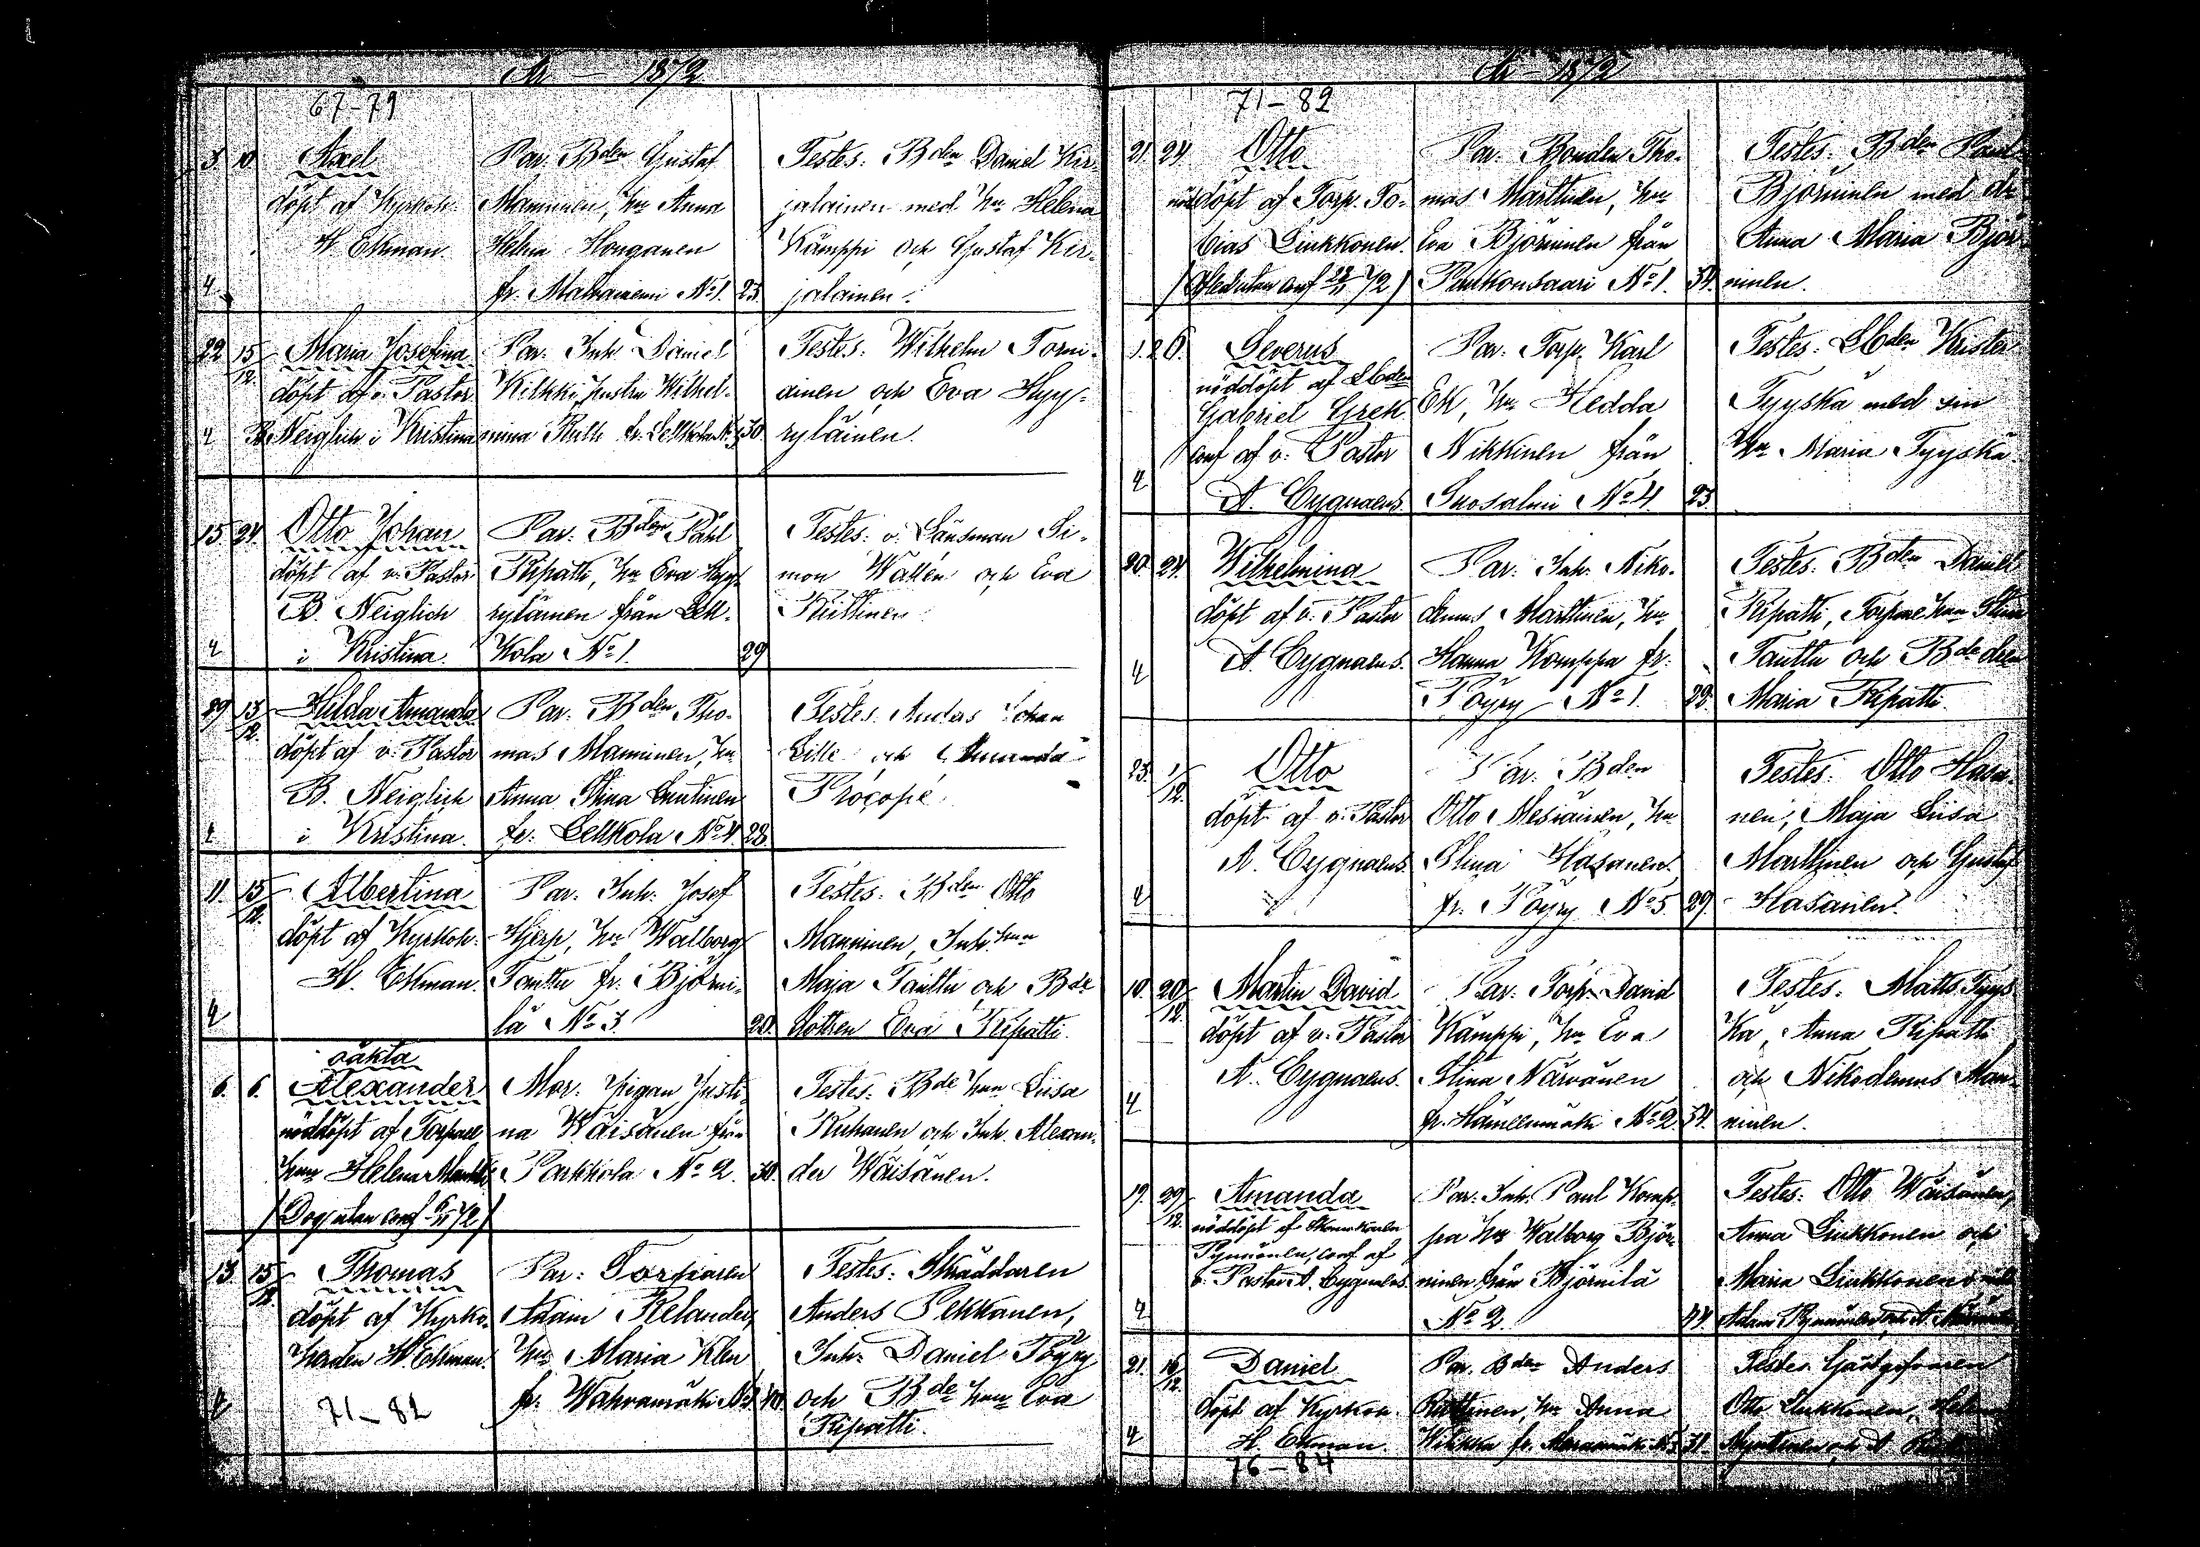 År — 1872
67-79
5 10 Axel
döpt af Kyrkoh.
H. Ekman.
4
Par. Bden Gustaf
Manninen, hu Anna
Helena Honganen
fr. No 1. 23.
Testes: Bden Daniel Kir-
jalainen med hu Helena
Kämppi och Gustaf Kir-
jalainen.
22 15/12. Maria Josefina
döpt af v. Pastor
4 B. Neiglich i Kristina
Par. Inh. Daniel
Kilkki, hustru Wilhel-
mina Rulh fr. Lellkola No 30
Testes. Wilhelm Torni-
ainen och Eva Hyy-
ryläinen.
15. 24. Otto Johan
döpt af v. Pastor
B. Neiglich
4 i Kristina.
Par: Bden Påhl
Ripatti, hu Eva Hyy-
ryläinen från Lell-
kola No 1. 29
Testes: v. Länsman Si-
mon Wallén och Eva
29 15/12. Hilda Amanda
döpt af v. Pastor
B. Neiglich
4 i Kristina.
Par. Bden Tho-
mas Manninen, hu
Anna Stina
fr. Lellkola No 4. 28.
Testes. Anders Johan
Lille och Amanda
Procopé.
11. 15/12. Albertina
döpt af Kyrkoh.
H. Ekman.
4
Par. Inh. Josef
Hjerp, hu Walborg
Taultu fr. Björni-
lä No 3 20.
Testes: Bden Otto
Manninen, Inh. hun
Maja Taultu och Bde
dottren Eva Ripatti.
oäkta
6. 6. Alexander
nöddöpt af Torpare
hun Helena
(Dog utan conf 6/11 72)
Mor. Pigan Justi-
na Wäisänen från
Parkkola No 2. 30.
Testes: Bde hun Liisa
Kuhanen och Inh. Alexan-
der Wäisänen.
13. 15/12 Thomas
döpt af Kyrko-
herden H Ekman.
4
71-82
Par: Torparen
Adam Relander,
hu Maria Klen
fr. Wahvamäki No 40
Testes: Skräddaren
Anders Pekkanen,
Inh. Daniel Pöyry
och Bde hun Eva
Ripatti.
År — 1872
71-82
21. 24. Otto
nöddöpt af Torp. To-
bias Linkkonen.
(Afled utan conf 72)
Par. Bonden Tho-
mas Marttinen, hu
Eva Björninen från
Paukonsaari No 1. 34.
Testes: Bden Paul
Björninen med dr
Anna Maria Björ-
ninen.
6. Severus
nöddöpt af Bden
Gabriel Grek
conf af v. Pastor
4 A. Cygnaeus
Par. Torp. Karl
Ek, hu Hedda
Nikkinen från
Suosalmi No 4 23
Testes: Bden Krister
Tyyskä med sin
hu Maria Tyyskä.
20. 24. Wilhelmina
döpt af v. Pastor
4 A. Cygnaeus.
Par: Inh. Niko-
demus Marttinen, hu
Hanna Komppa fr.
Pöyry No 1. 23.
Testes. Bden Daniel
Ripatti, Torpare hun Stina
Taultu och Bde
Maria Ripatti.
25. 1/12. Otto
döpt af v. Pastor
A. Cygnaeus
4
Par. Bden
Otto Mesiäinen, hu
Stina Hasanen.
fr. Pöyry No 5. 29.
Testes: Otto Hasa-
nen, Maja Liisa
Marttinen och Gustaf
Hasanen.
10. 20/12. Martin David
döpt af v. Pastor
A. Cygnaeus.
4
Par. Torp. David
Kämppi, hu Eva
Stina Närvänen
fr. Hännilmäki No 2. 34.
Testes: Matts Tyys-
kä, Anna Ripatti
och Nikodemus Man-
ninen.
19. 29/12. Amanda
nöddöpt af
Pynnönen, conf af
v. Pastor A. Cygnaeus.
4
Par. Inh. Paul Komp-
pa hu Walborg Björ-
ninen från Björnilä
No 2. 44.
Testes: Otto Wäisänen,
Anna Linkkonen och
Maria Linkkonen
Adam Pynnönen
21. 16/12. Daniel
döpt af Kyrkoh.
4 H. Ekman.
76-84
Par. Bden Anders
hu Anna
31.
Testes. Gästgifvaren
Otto Linkkonen,